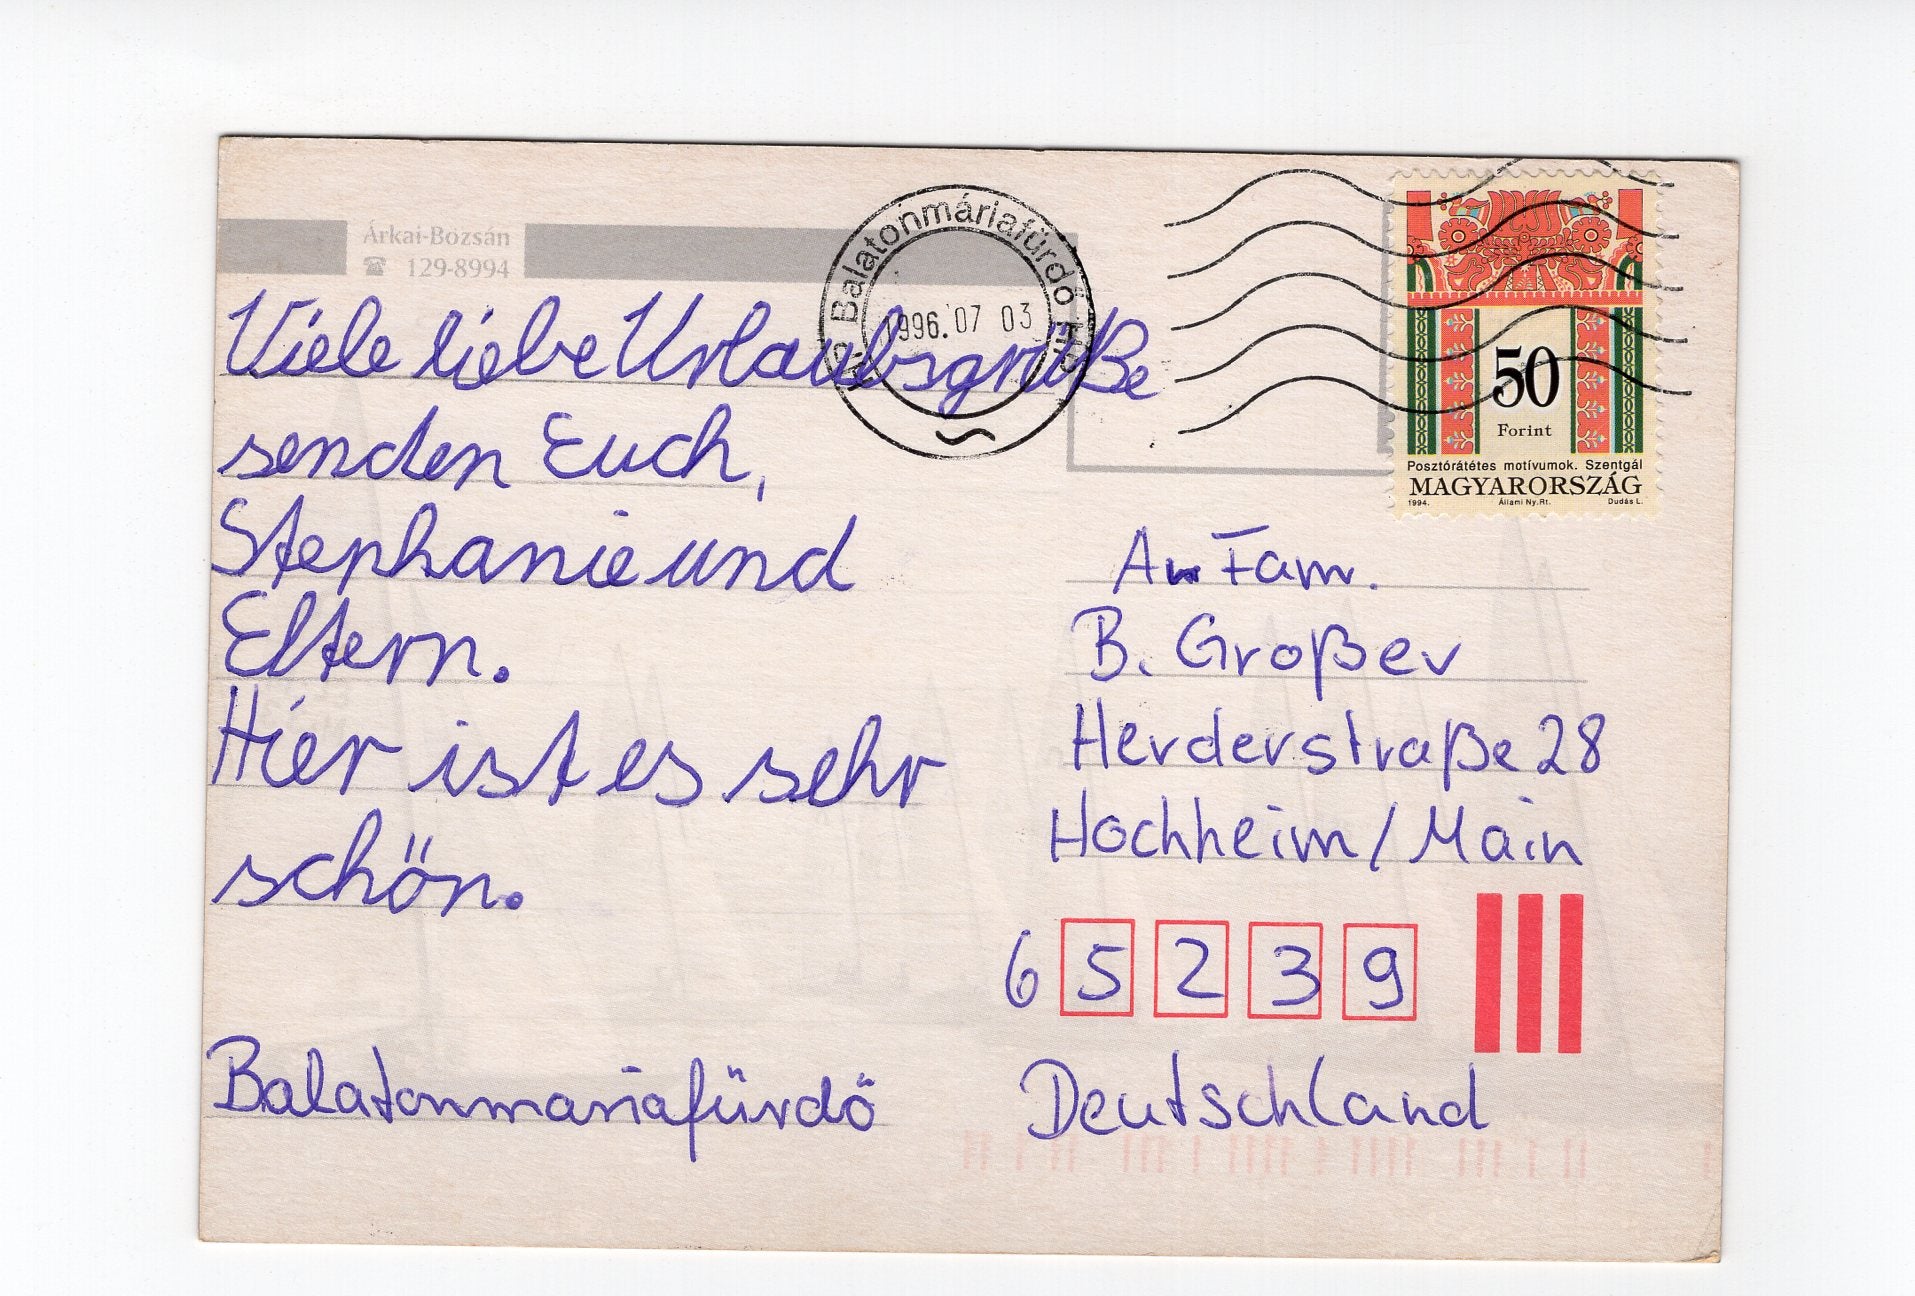 Árkai-Bozsán
☎ 129-8994
Balatonmáriafürdő
1996. 07 03
50
Forint
Posztórátétes motívumok. Szentgál
MAGYARORSZÁG
1994. Állami Ny.Rt. Dudás L.
Viele liebe Urlaubsgrüße
senden Euch,
Stephanie und
Eltern.
Hier ist es sehr
schön.
Balatonmariafürdö
An Fam.
B. Großer
Herderstraße 28
Hochheim/Main
6 5 2 3 9
Deutschland